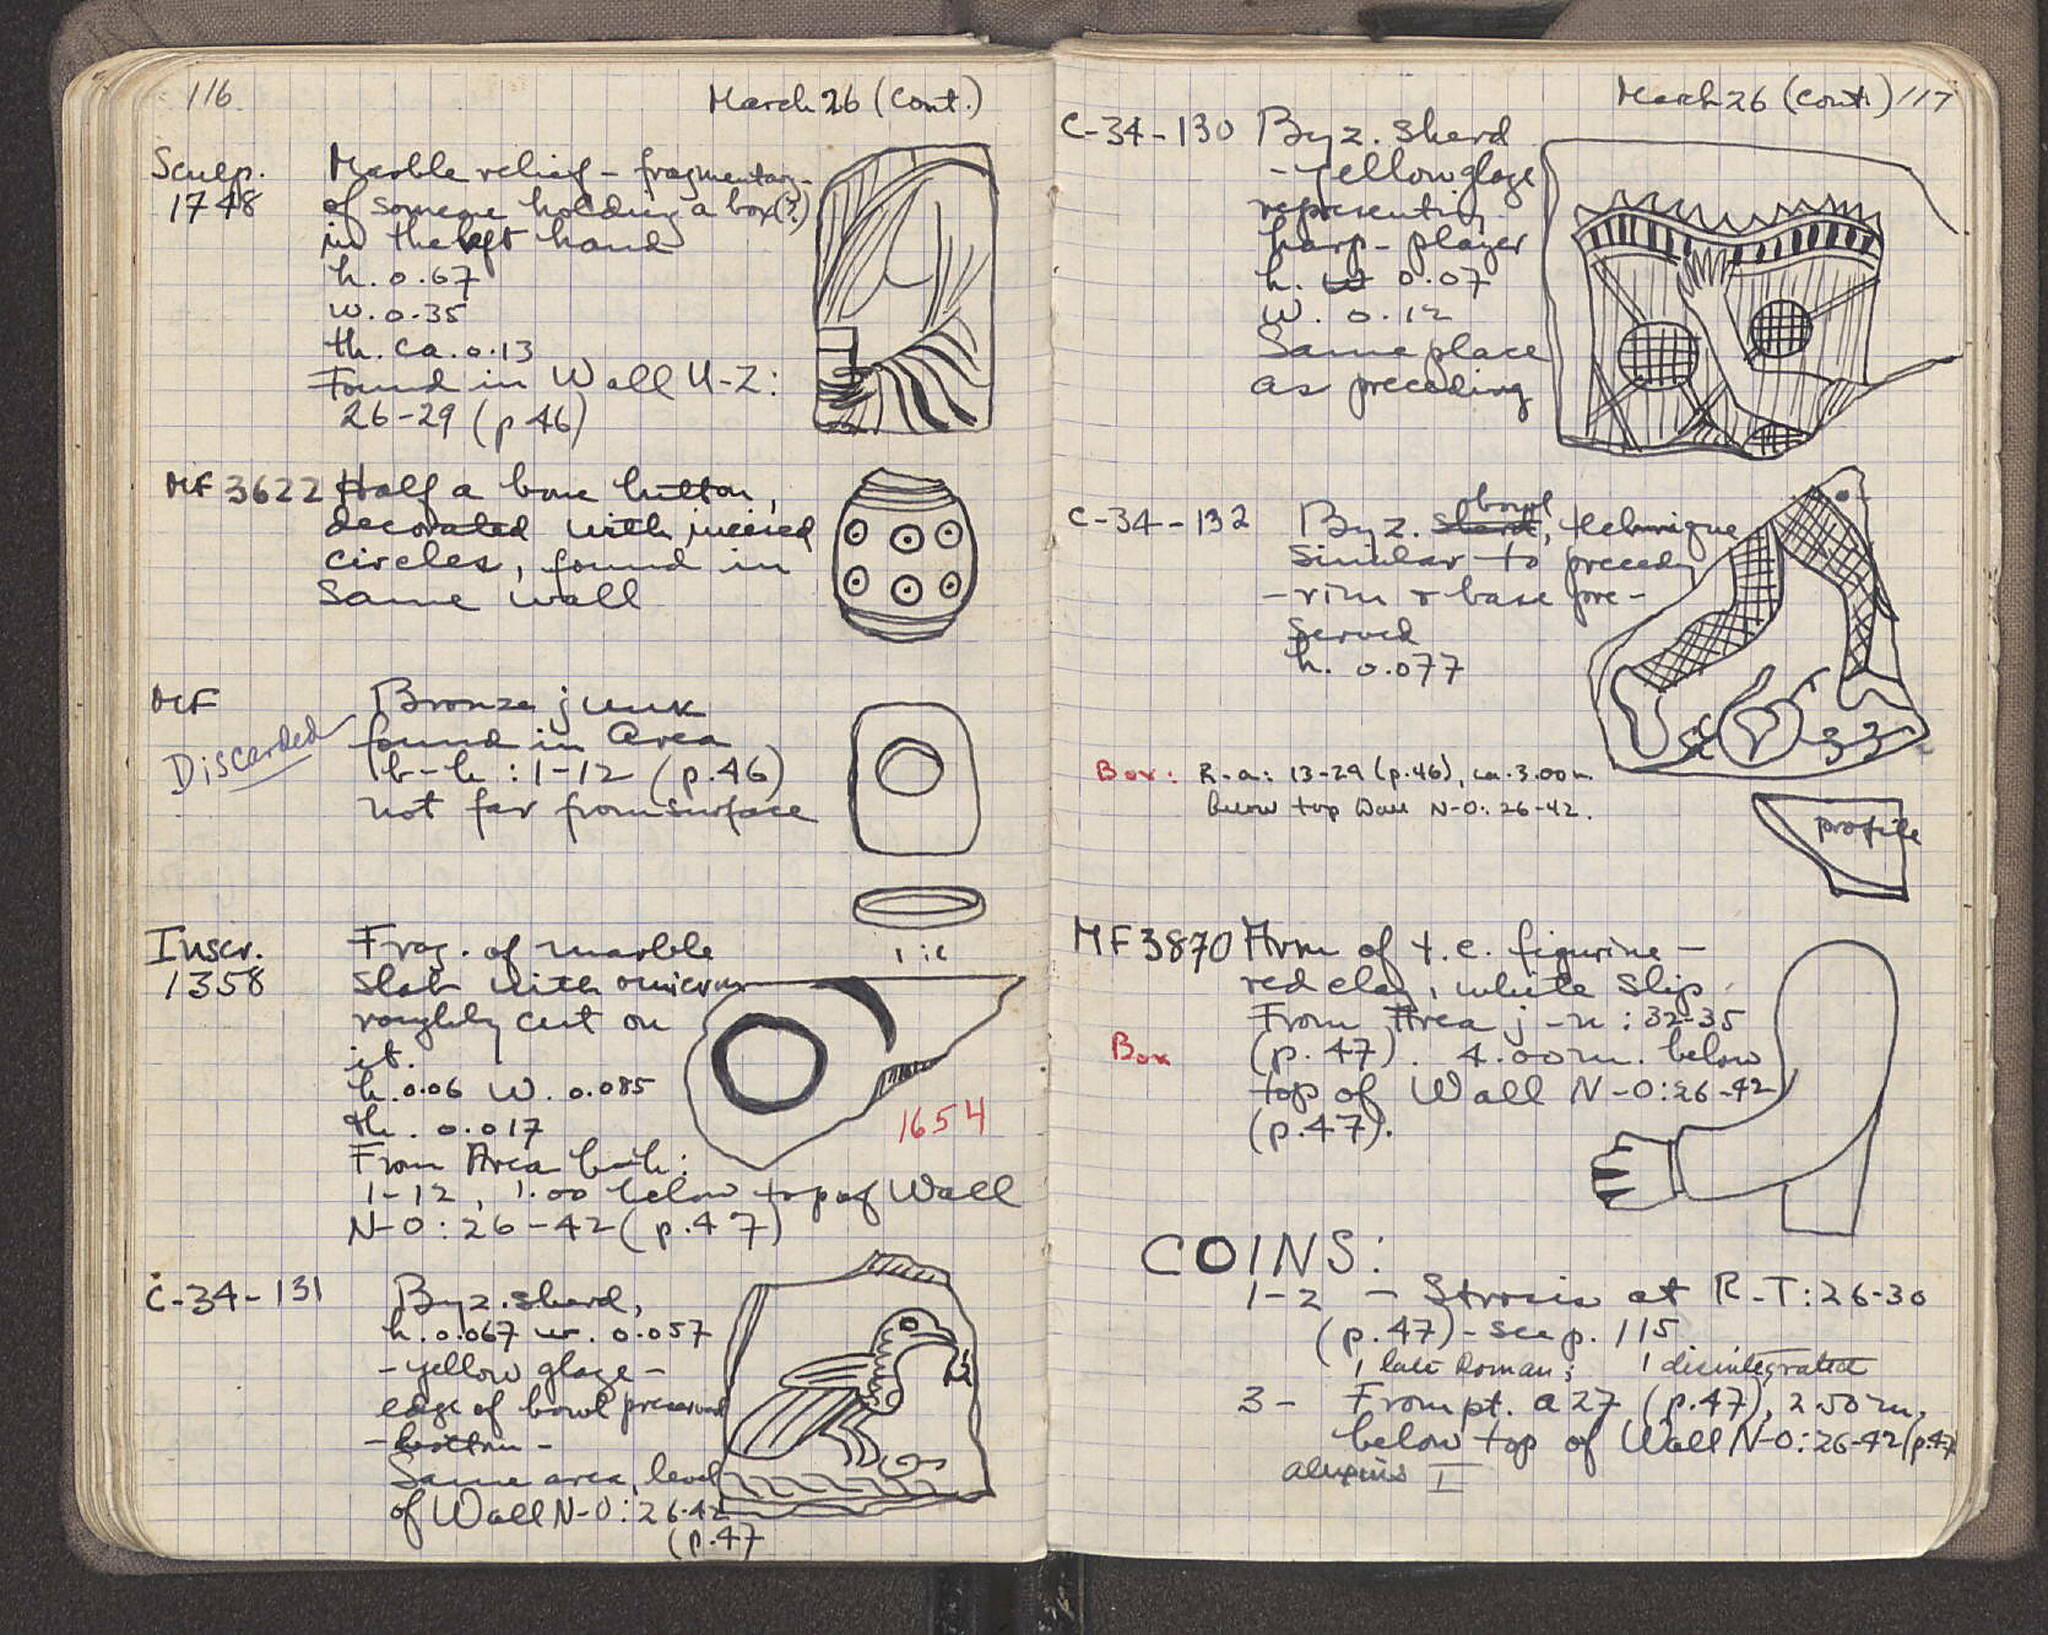 116
March 26 (Cont.)
Sculp.
1748
Marble relief - fragmentary -
of someone holding a box(?)
in the left hand
h. 0.67
w. 0.35
th. ca. 0.13
Found in Wall U-Z:
26-29 (p 46)
MF 3622
Half a bone button,
decorated with incised
circles, found in
same wall
MF
Discarded
Bronze junk
found in Area
b-h : 1-12 (p.46)
not far from surface
1:1
Inscr.
1358
Frag. of marble
slab with omicron
roughly cut on
it.
h. 0.06 w. 0.085
th. 0.017
1654
From Area b-h:
1-12, 1.00 below top of Wall
N-O: 26-42 (p.47)
C-34-131
Byz. sherd,
h. 0.067 w. 0.057
- yellow glaze -
edge of bowl preserved
- bottom -
Same area, level
of Wall N-O: 26-42
(p.47
March 26 (Cont.) 117
C-34-130
Byz. sherd
- yellow glaze
representing
harp-player
h. w 0.07
w. 0.12
Same place
as preceding
C-34-132
Byz. sherd bowl, technique
similar to preced
- rim & base pre-
served
h. 0.077
Box: R-a: 13-29 (p.46), ca. 3.00 m.
below top Wall N-O: 26-42.
profile
MF 3870
Arm of t.c. figurine -
red clay, white slip.
From Area j-n: 32-35
Box
(p. 47). 4.00 m. below
top of Wall N-O: 26-42
(p.47).
COINS:
1-2 - Strosis at R-T: 26-30
(p.47) - see p. 115
1 late Roman; 1 disintegrated
3 - From pt. a27 (p.47), 2.50 m.
below top of Wall N-O: 26-42 (p.47
Alexius I